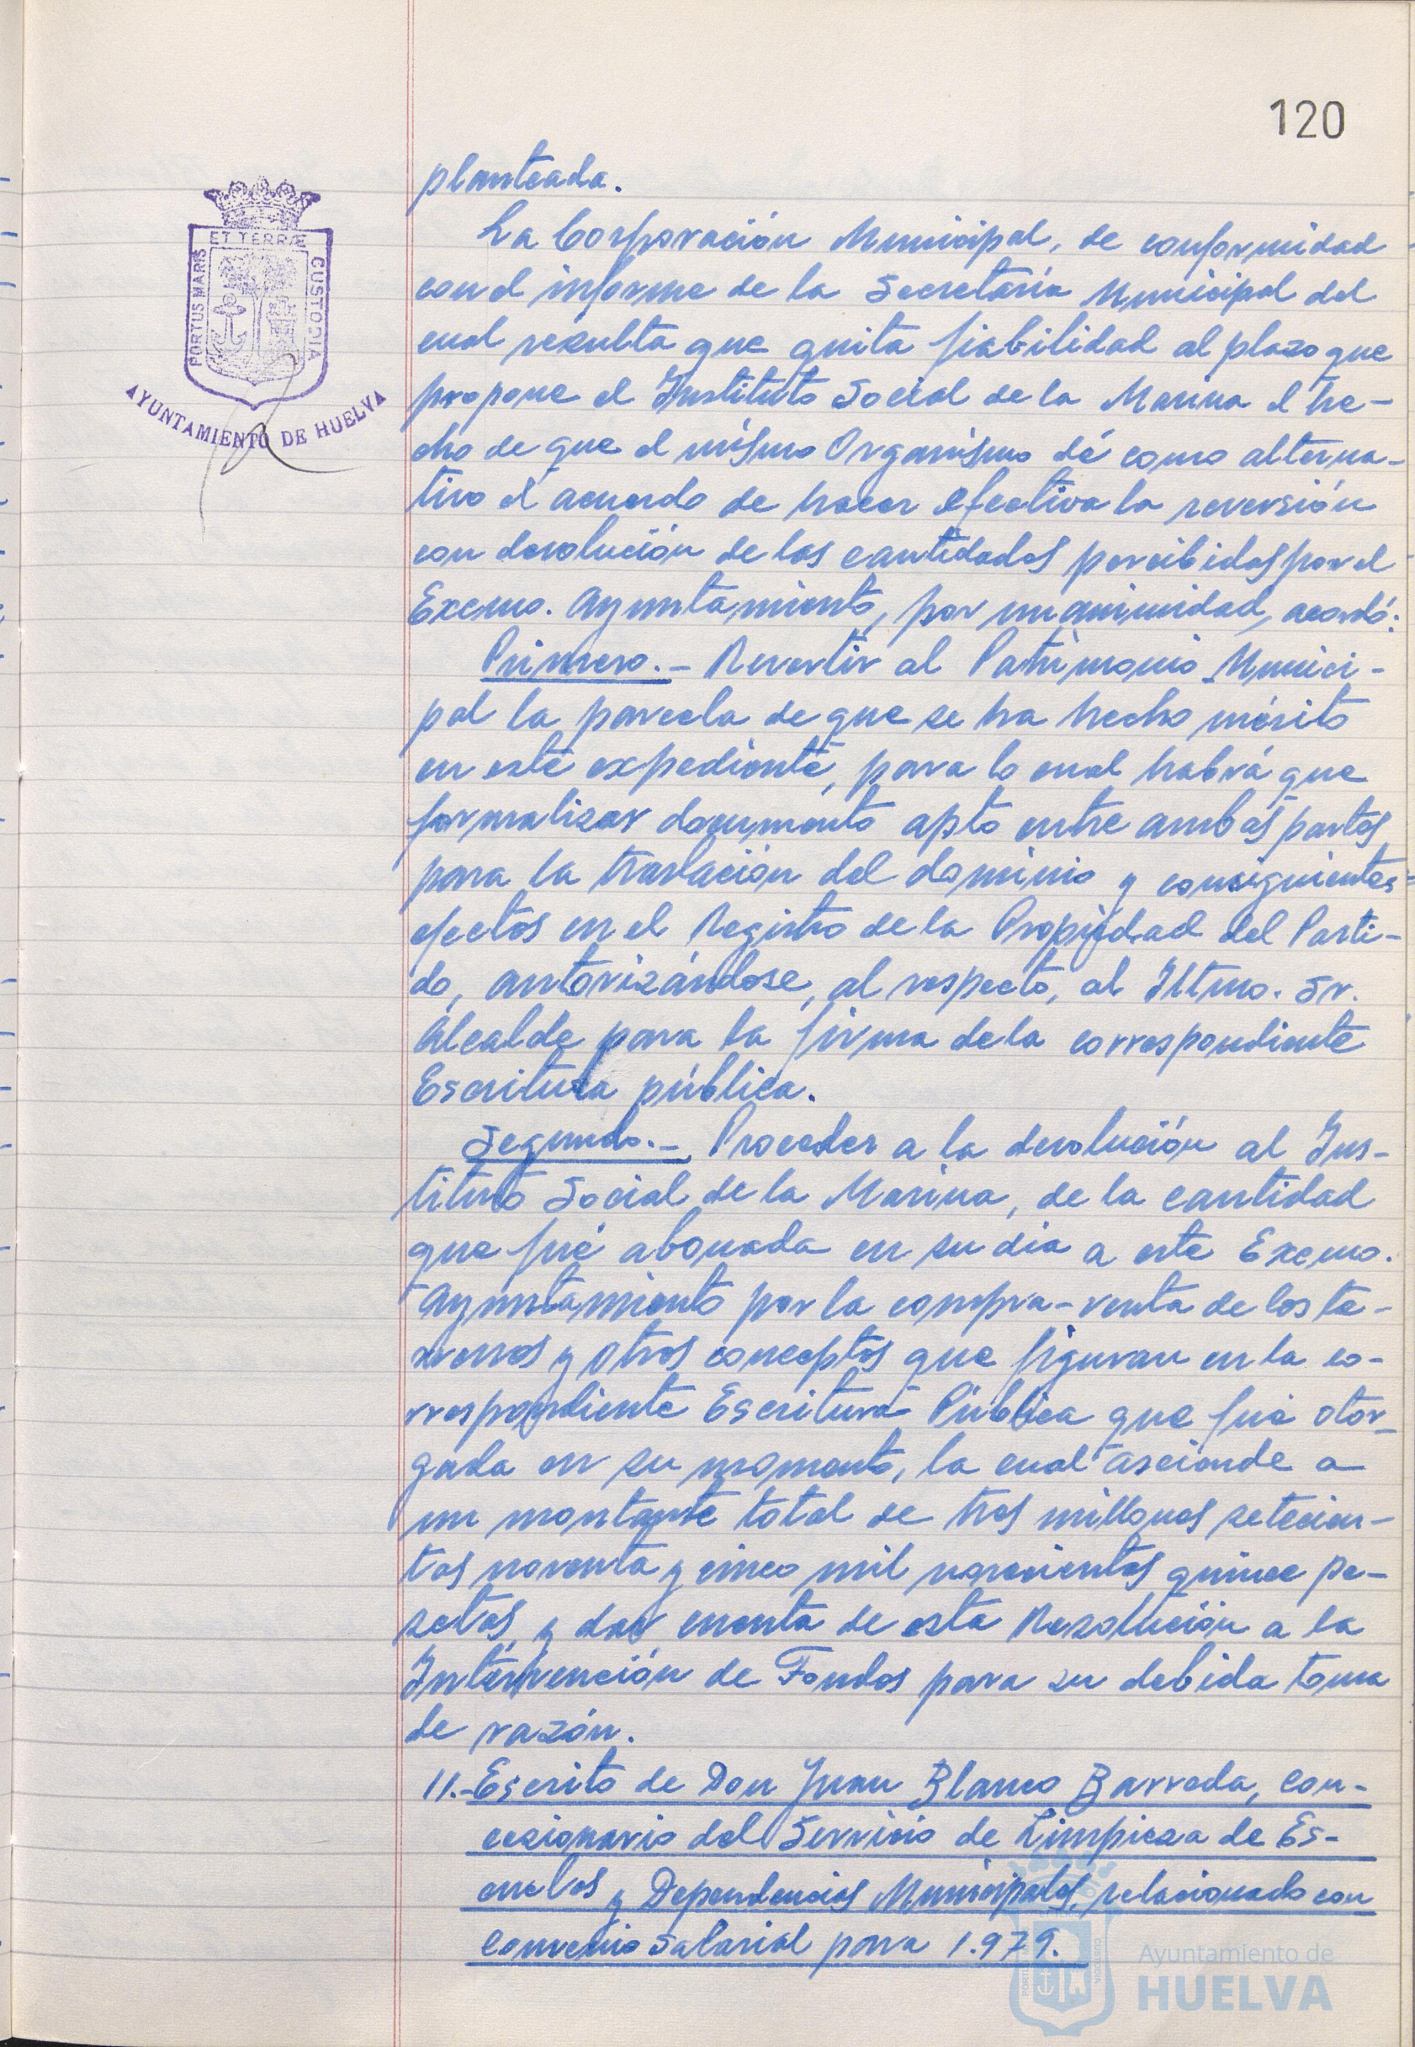 120
planteada.
La Corporación Municipal, de conformidad
con el informe de la Secretaría Municipal del
cual resulta que quita fiabilidad al plazo que
propone el Instituto Social de la Marina el he-
cho de que el mismo Organismo dé como alterna-
tivo el acuerdo de hacer efectiva la reversión
con devolución de las cantidades percibidas por el
Excmo. Ayuntamiento, por unanimidad, acordó:
Primero.- Revertir al Patrimonio Munici-
pal la parcela de que se ha hecho mérito
en este expediente, para lo cual habrá que
formalizar documento apto entre ambas partes
para la traslación del dominio y consiguientes
efectos en el Registro de la Propiedad del Parti-
do, autorizándose, al respecto, al Iltmo. Sr.
Alcalde para la firma de la correspondiente
Escritura pública.
Segundo.- Proceder a la devolución al Ins-
tituto Social de la Marina, de la cantidad
que fué abonada en su dia a este Excmo.
Ayuntamiento por la compra-venta de los te-
rrenos y otros conceptos que figuran en la co-
rrespondiente Escritura Pública que fué otor-
gada en su momento, la cual asciende a
un montante total de tres millones setecien-
tas noventa y cinco mil quince pe-
setas, y dar cuenta de esta Resolución a la
Intervención de Fondos para su debida toma
de razón.
11.- Escrito de Don Juan Blanco Barreda, con-
cesionario del Servicio de Limpieza de Es-
cuelas y Dependencias Municipales, relacionado con
Convenio Salarial para 1.979.
PORTUS MARIS ET TERRÆ CUSTODIA
AYUNTAMIENTO DE HUELVA
Ayuntamiento de
HUELVA